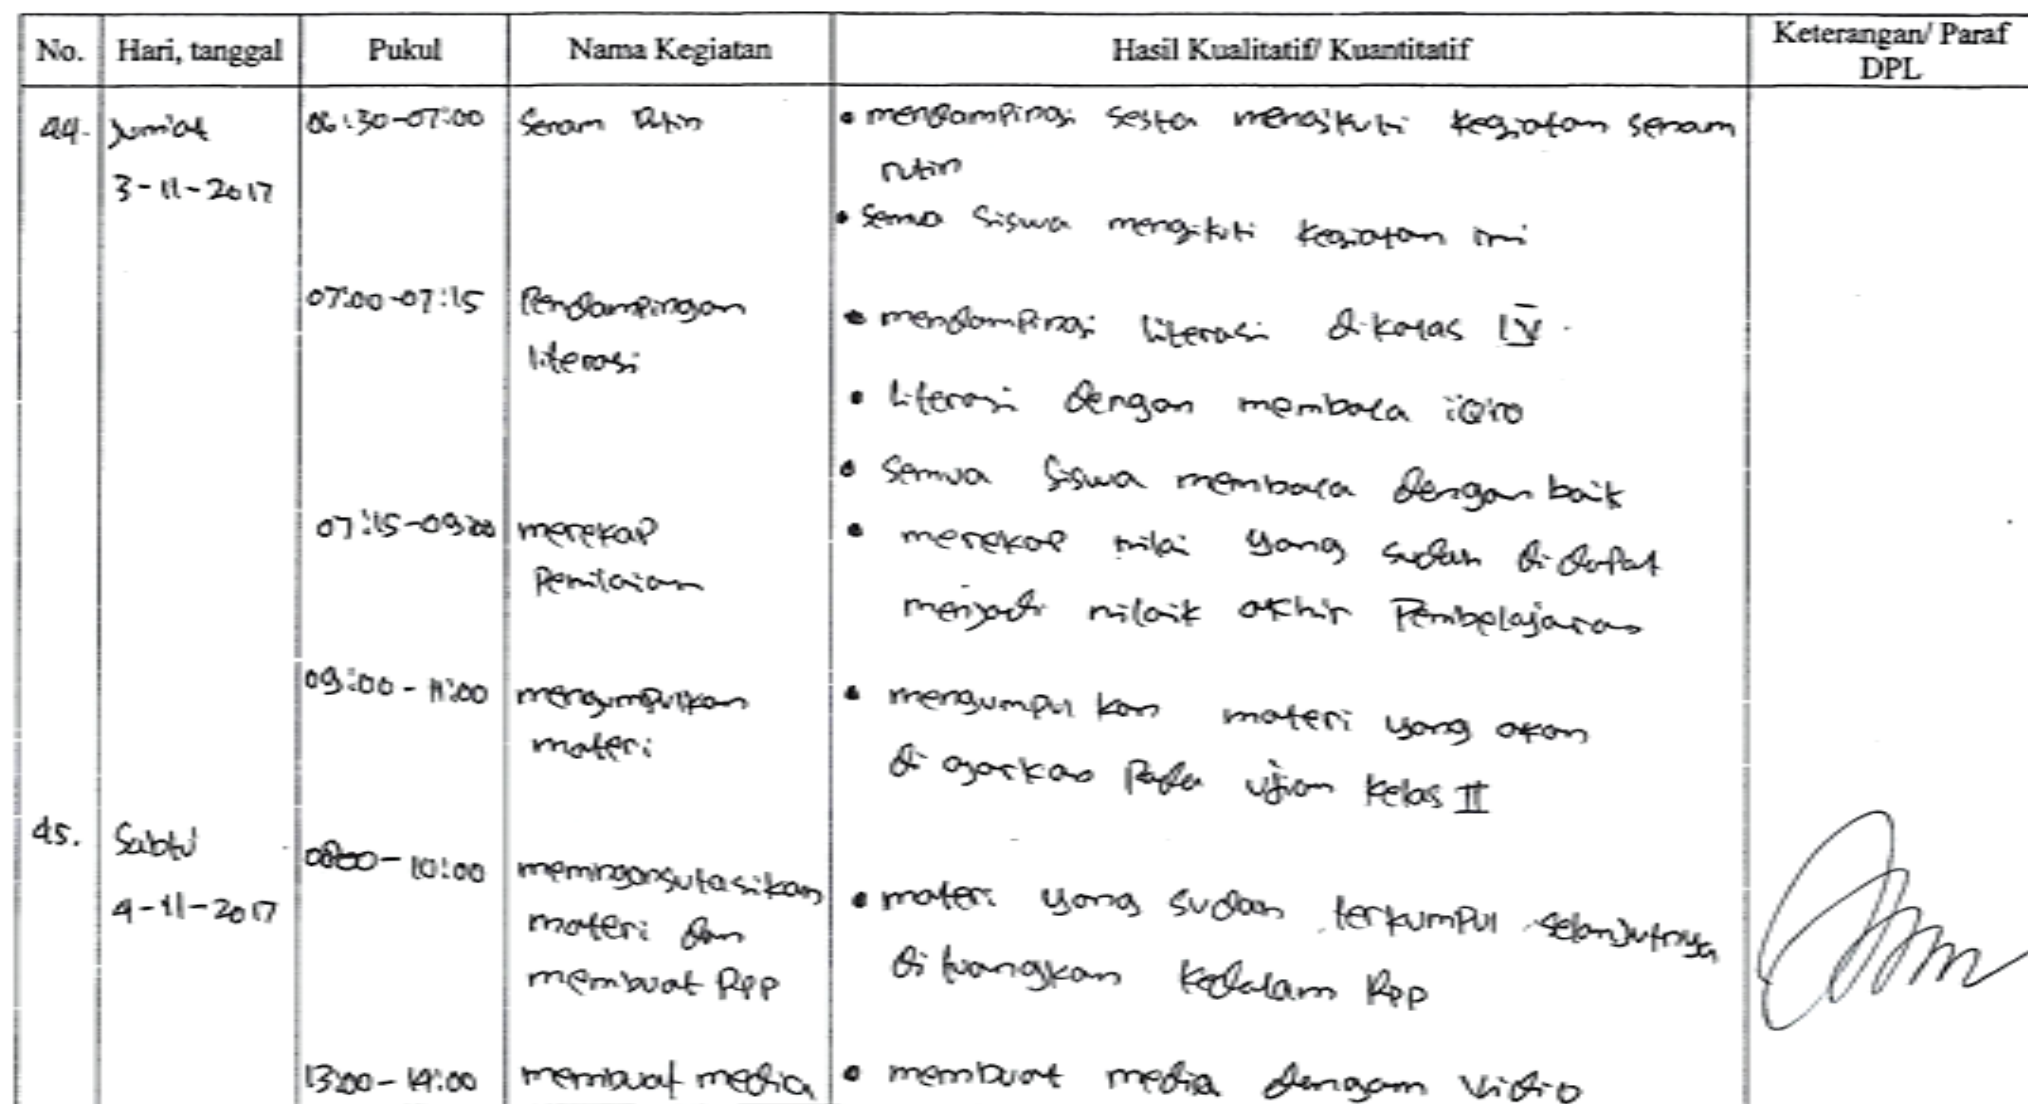 No. Hari, tanggal Pukul Nama Kegiatan Hasil Kualitatif/ Kuantitatif Keterangan/ Paraf DPL
44. Jum'at 06:30-07:00 Senam Rutin • mendampingi mengikuti kegiatan senam
3-11-2017 rutin
• Semua siswa mengikuti kegiatan ini
07:00-07:15 Pendampingan • mendampingi literasi dikelas IV
literasi
• literasi dengan membaca iQro
• Semua siswa membaca dengan baik
07:15-09:00 merekap • merekap nilai yang sudah di dapat
Penilaian menjadi nilaik akhir Pembelajaran
09:00-11:00 mengumpulkan • mengumpul kan materi yang akan
materi di ajarkan Pada ujian kelas II
45. Sabtu 08:00-10:00 materi dan • materi yang sudah terkumpul selanjutnya
4-11-2017 membuat Rpp di tuangkan kedalam Rpp
13:00-14:00 membuat media • membuat media dengan vidio